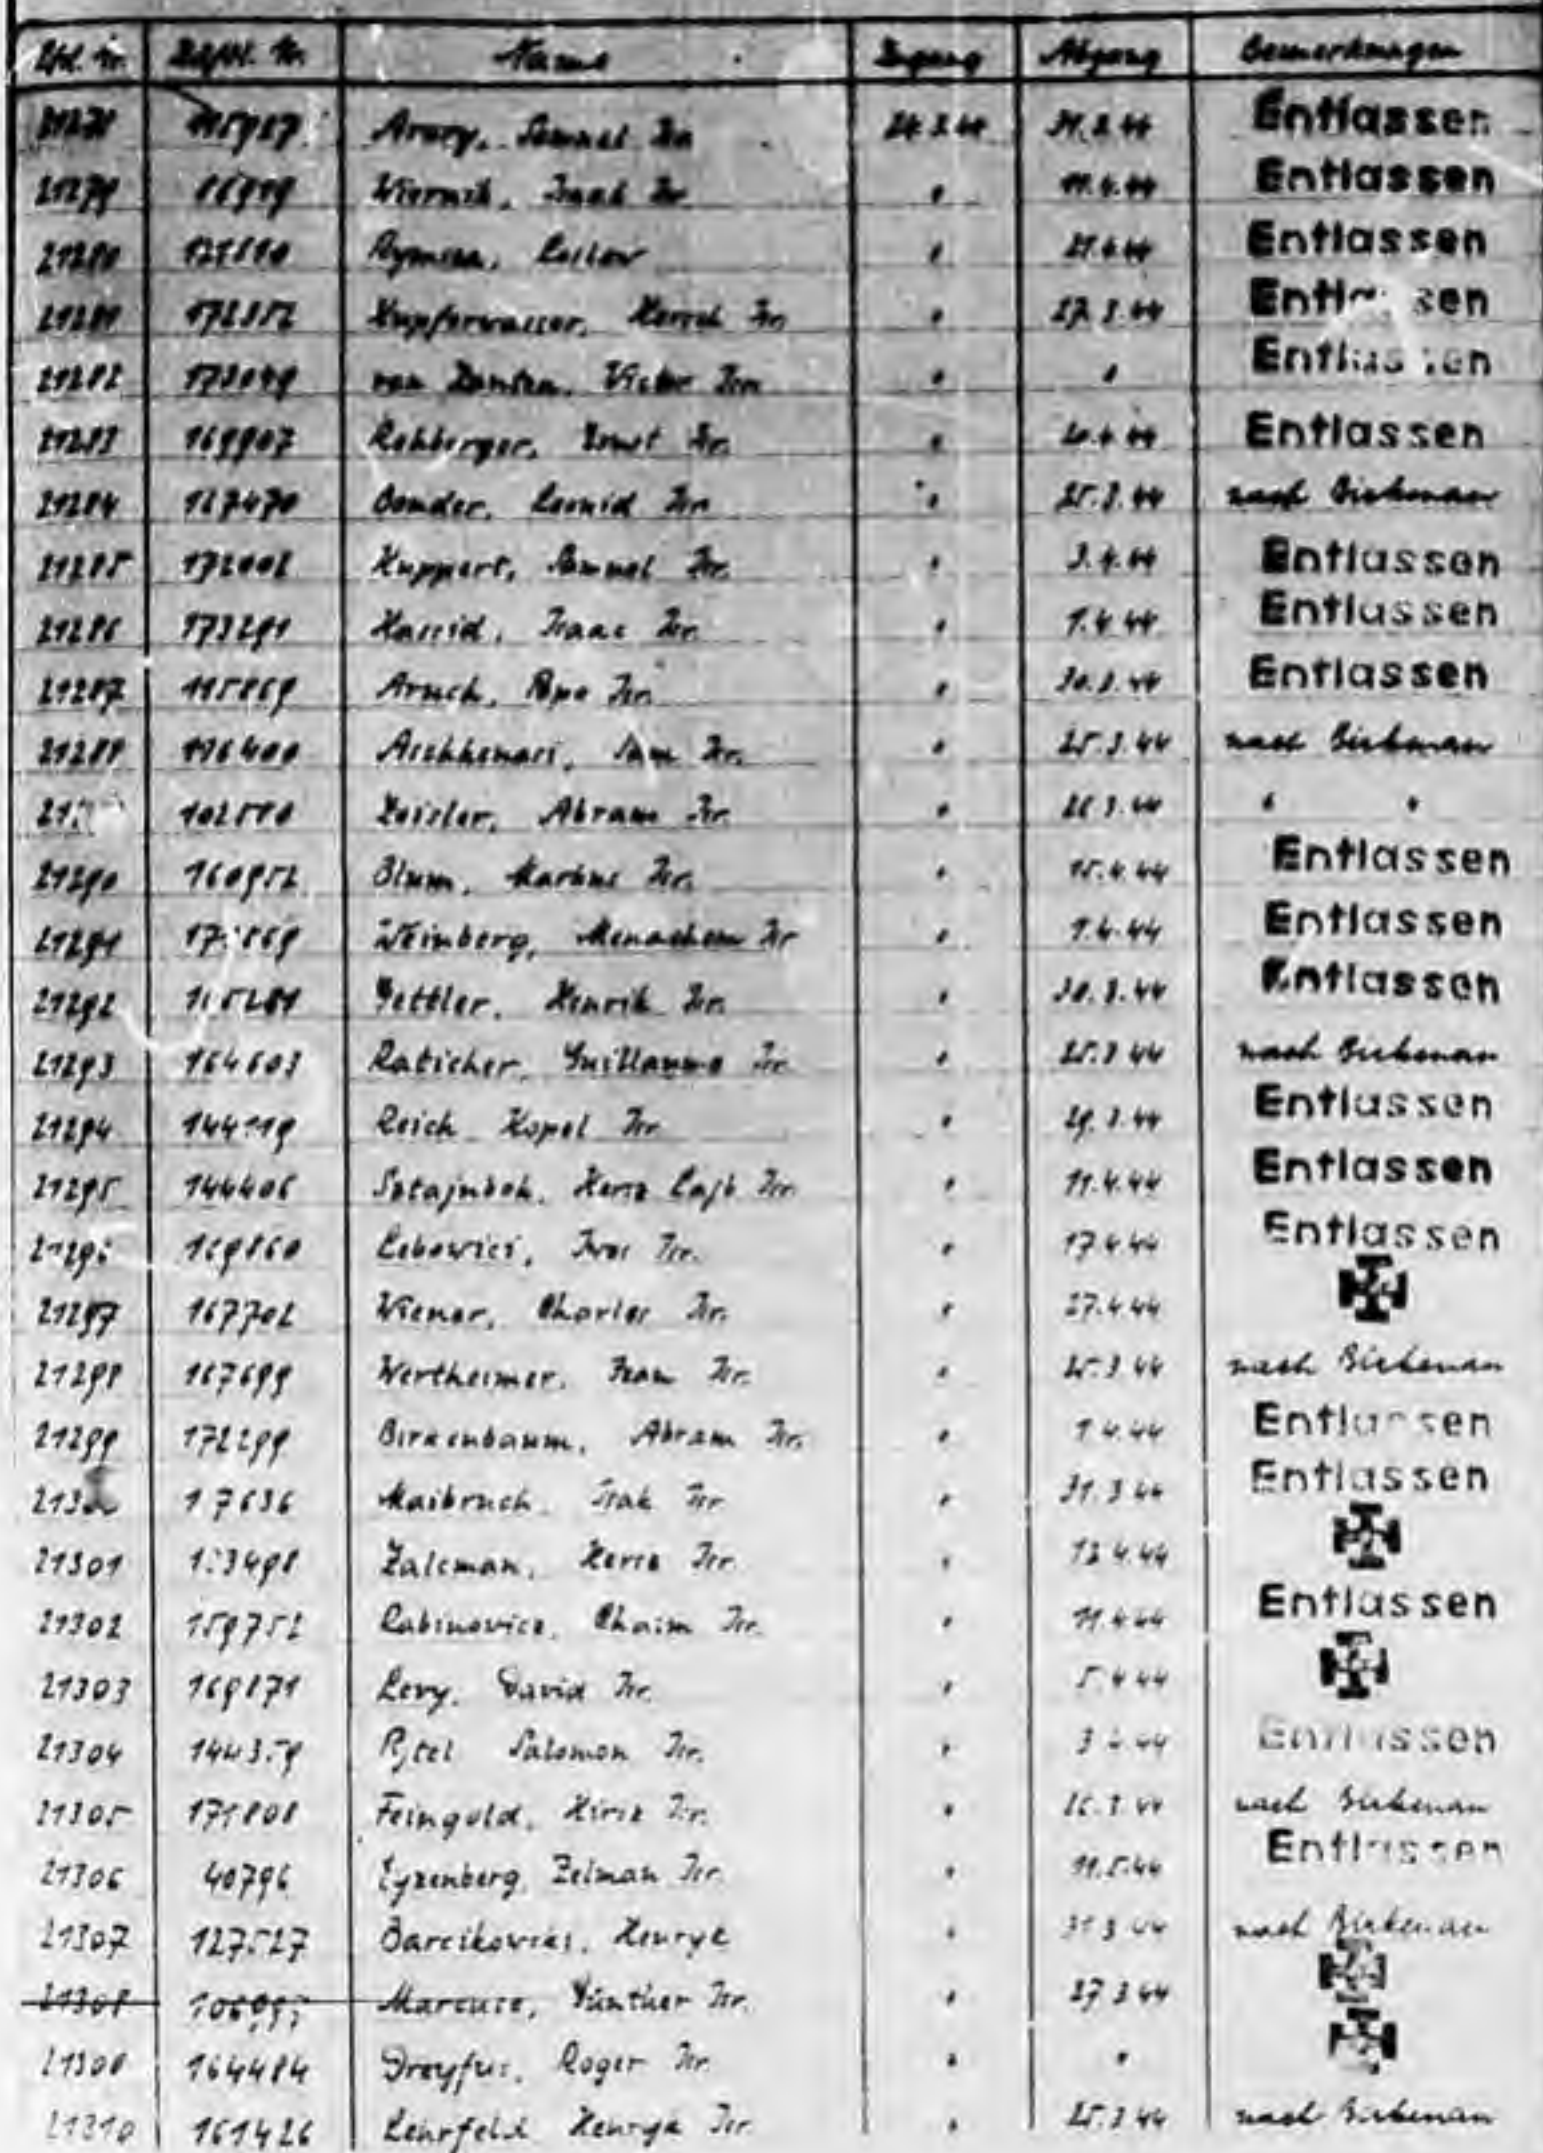 Lfd. Nr. Häftl. Nr. Name Zugang Abgang Bemerkungen
Samuel Isr. 24.3.44 31.3.44 Entlassen
21279 Wiernik, Isr. " 11.4.44 Entlassen
21280 " 21.4.44 Entlassen
21281 172352 Kupferwasser, Hersch Isr. " 27.3.44 Entlassen
21282 173049 van Victor Isr. " " Entlassen
21283 169907 Rehberger, Ernst Isr. " 20.4.44 Entlassen
21284 167470 Bonder, Leonid Isr. " 25.3.44 nach Birkenau
21285 172002 Huppert, Samuel Isr. " 3.4.44 Entlassen
21286 173291 Hassid, Isaac Isr. " 1.4.44 Entlassen
21287 115869 Aruch, Pepo Isr. " 30.3.44 Entlassen
21288 116400 Isr. " 25.3.44 nach Birkenau
102550 Zeisler, Abram Isr. " 26.3.44 " "
21290 160952 Blum, Markus Isr. " 15.4.44 Entlassen
21291 Weinberg, Menachem Isr. " 1.4.44 Entlassen
21292 Gettler, Henrik Isr. " 30.3.44 Entlassen
21293 164603 Raticher, Guillaume Isr. " 25.3.44 nach Birkenau
21294 Reich Kopel Isr. " 29.3.44 Entlassen
21295 144406 Herz Lajb Isr. " 11.4.44 Entlassen
169860 Lebovici, Isr. " 17.4.44 Entlassen
21297 167702 Wiener, Charles Isr. " 27.4.44
21298 167699 Wertheimer, Jean Isr. " 25.3.44 nach Birkenau
21299 172299 Birkenbaum, Abram Isr. " 1.4.44 Entlassen
Maibruch, Isak Isr. " 31.3.44 Entlassen
21301 Zalcman, Hersz Isr. " 12.4.44
21302 159752 Rabinovicz, Chaim Isr. " 11.4.44 Entlassen
21303 169871 Levy, David Isr. " 5.4.44
21304 144359 Pytel Salomon Isr. " 3.4.44 Entlassen
21305 171808 Feingold, Hirsz Isr. " 26.3.44 nach Birkenau
21306 40796 Eyzenberg, Zelman Isr. " 11.5.44 Entlassen
21307 127527 Henryk " 31.3.44 nach Birkenau
21308 Marcuse, Günther Isr. " 27.3.44
164484 Dreyfus, Roger Isr. " "
21310 161426 Lehrfeld Henryk Isr. " 25.3.44 nach Birkenau